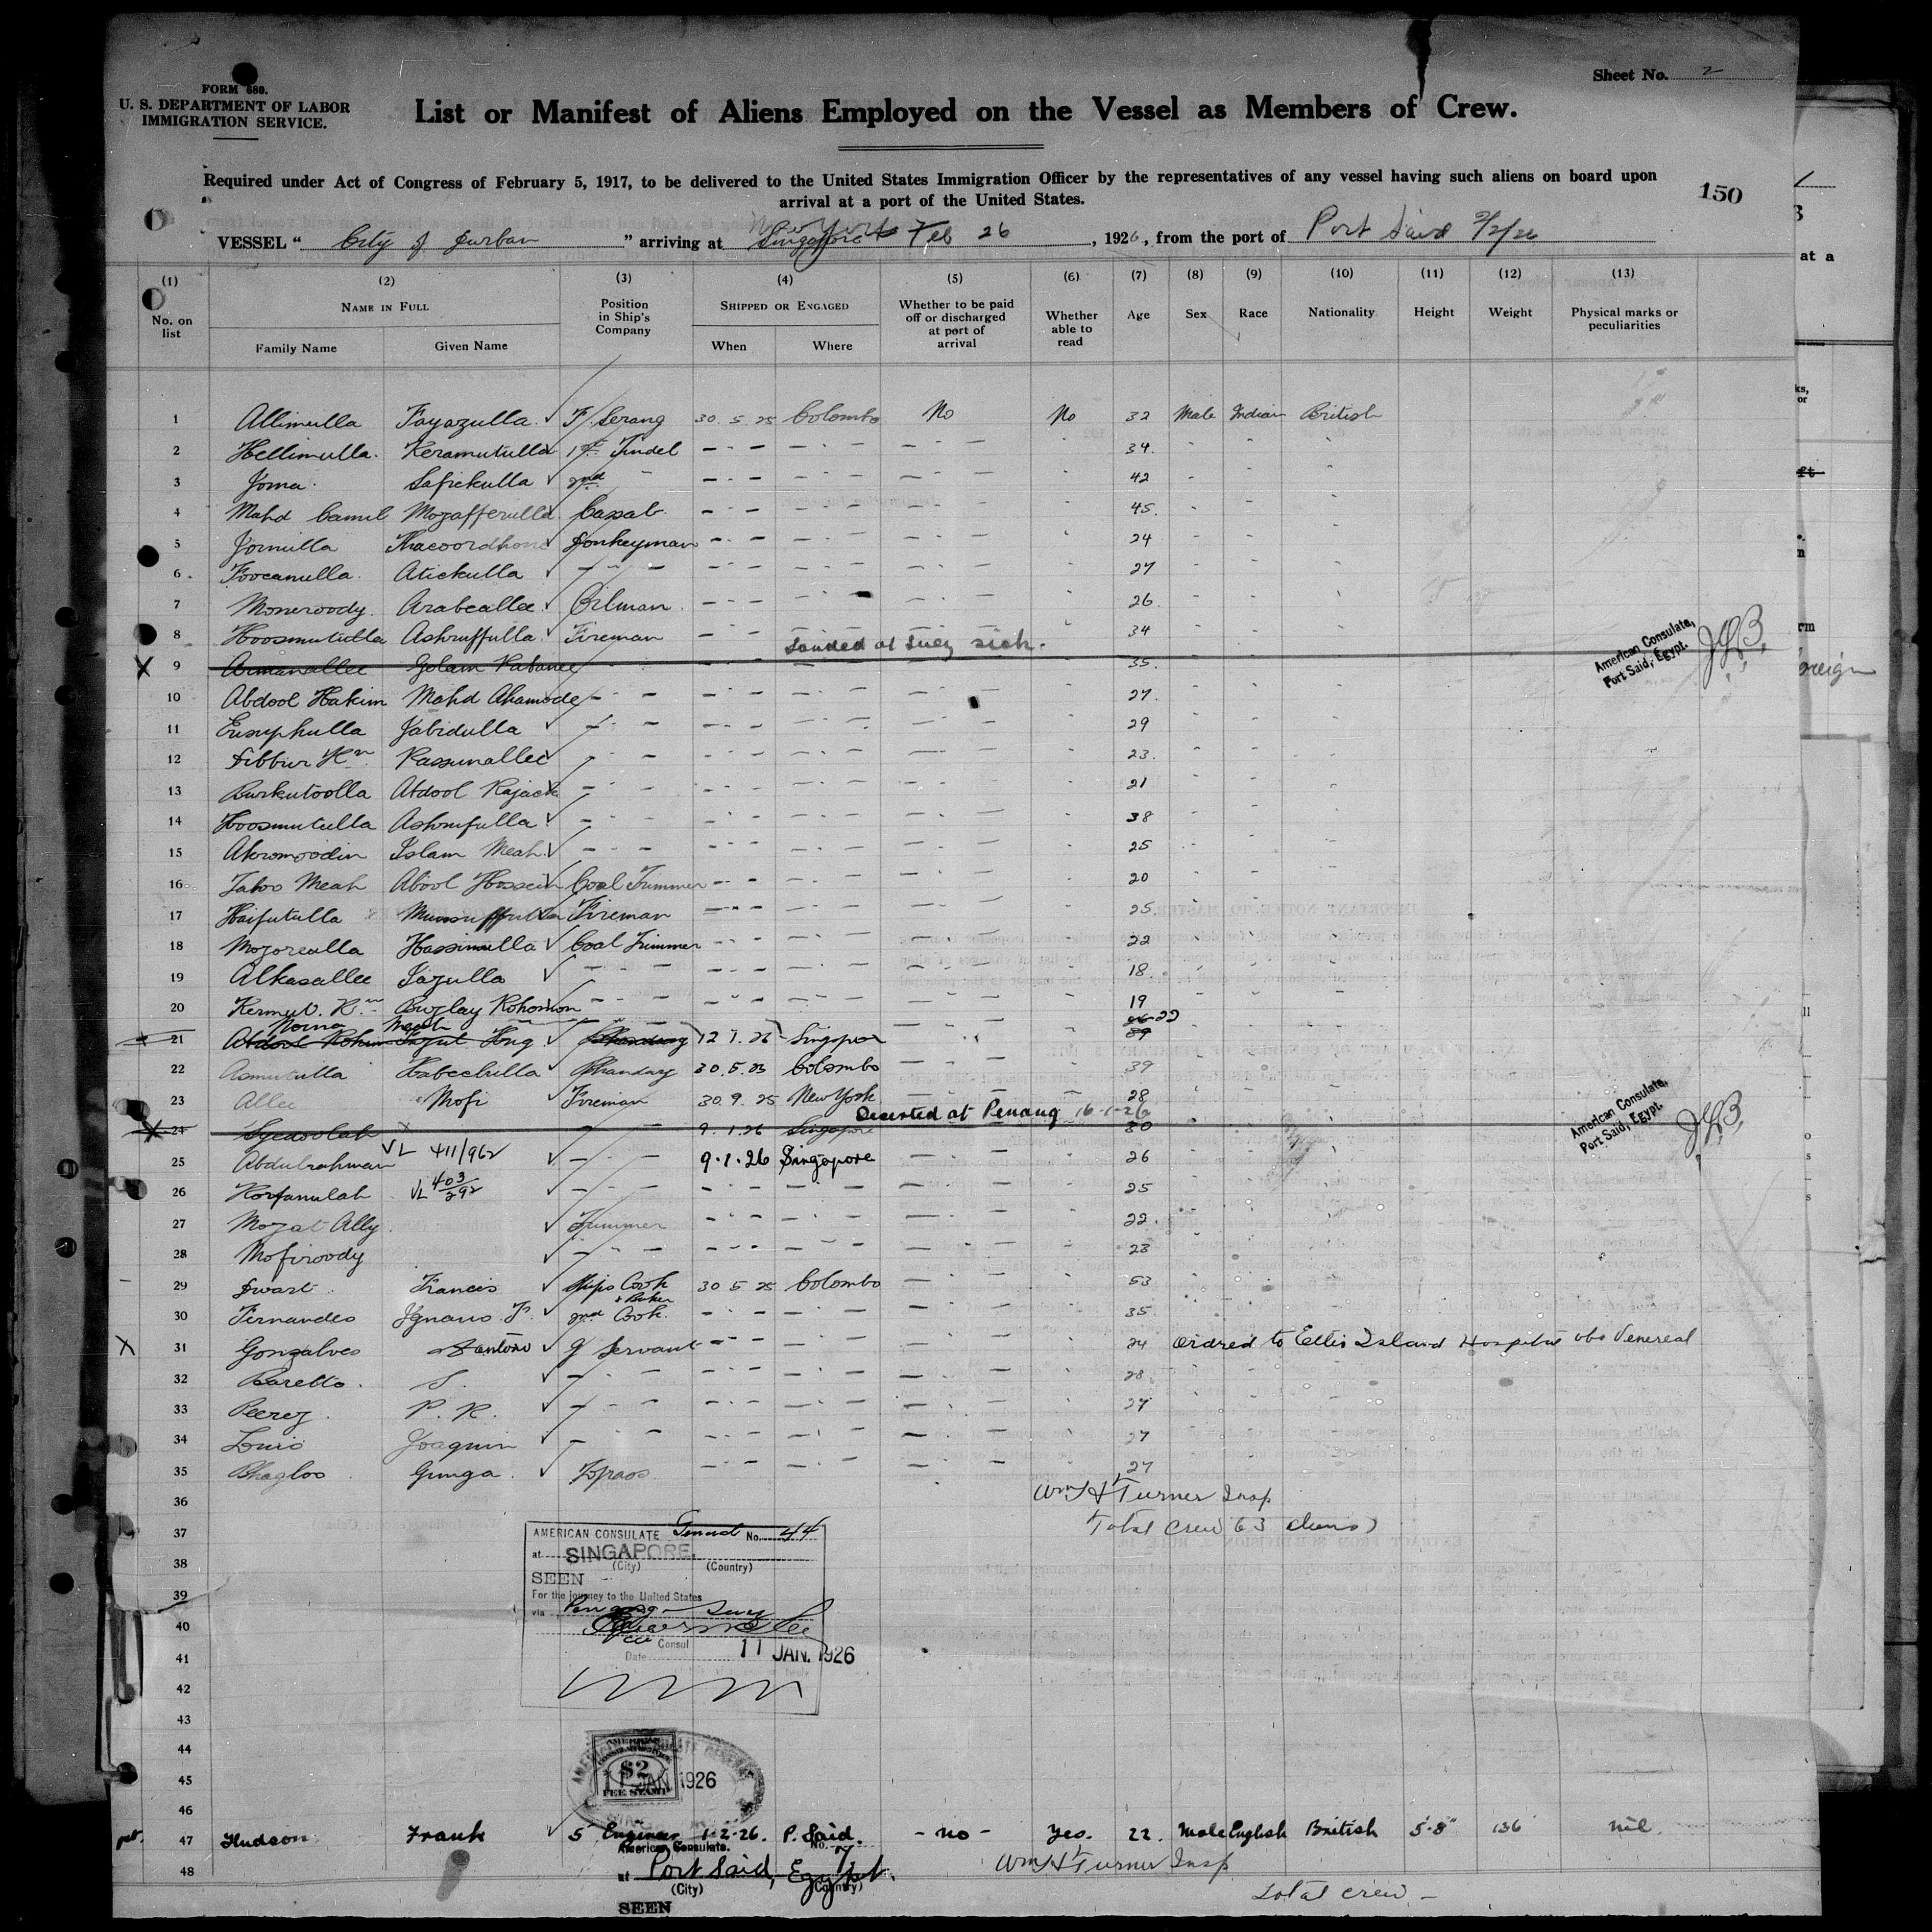 Sheet No. 2
FORM 680.
U. S. DEPARTMENT OF LABOR
IMMIGRATION SERVICE.
List or Manifest of Aliens Employed on the Vessel as Members of Crew.
Required under Act of Congress of February 5, 1917, to be delivered to the United States Immigration Officer by the representatives of any vessel having such aliens on board upon
arrival at a port of the United States.
150
VESSEL " City of Durban " arriving at Singapore New York Feb 26, 1926, from the port of Port Said
(1) (2) (3) (4) (5) (6) (7) (8) (9) (10) (11) (12) (13)
No. on list
NAME IN FULL
Family Name Given Name
Position in Ship's Company
SHIPPED OR ENGAGED
When Where
Whether to be paid off or discharged at port of arrival
Whether able to read
Age Sex Race Nationality Height Weight
Physical marks or peculiarities
1 Allimulla Fayazulla F/Serang 30.5.25 Colombo No No 32 Male Indian British
2 Hellimulla Keramutulla 1st Tindel 34
3 Joma Safickulla 2nd " 42
4 Mahd Camil Mozafferulla Cassab 45
5 Jormulla Donkeyman 24
6 Foocanulla Atickulla 27
7 Moneroody Arabeallee Oilman 26
8 Hoosmutulla Ashruffulla Fireman 34
Landed at Suez sick.
9 Armanallee Golam Rabanee 35
American Consulate,
Port Said, Egypt.
10 Abdool Hakim Mahd Ahamode 27
11 Eusuphulla Jabidulla 29
12 Rassunallee 23
13 Burkutoolla Abdool Rajack 21
14 Hoosmutulla Ashrufulla 38
15 Akromoodin Islam Meah 25
16 Taboo Meah Abool Hossein Coal Trimmer 20
17 Haifutulla Fireman 25
18 Mozorealla Hassimulla Coal Trimmer 22
19 Alkasallee Sazulla 18
20 Kermut. Rn Buzlay Rohomon 19
Noma Meah 22
21 Abdool Rohim Hoq Bhandary 12.1.26 Singapore
22 Asmutulla Habechulla Bhandary 30.5.25 Colombo 39
23 Allee Mofi Fireman 30.9.25 New York 28
Deserted at Penang 16-1-26
24 Syedoolah 9.1.26 Singapore 30
American Consulate,
Port Said, Egypt.
25 Abdulrahman VL 411/962 9.1.26 Singapore 26
26 Korfanulah VL 403/292 25
27 Mozat Ally Trimmer 22
28 Mofiroody 23
29 Dwart Francis Ships Cook & Baker 30 5 25 Colombo 53
30 Fernandes 2nd Cook 35
31 Gonsalves Santono G Servant 24 Ordred to Ellis Island Hospital obs Venereal
32 Baretto S. 28
33 Peerez P. R. 27
34 Louis Joaquin 27
35 Bhagloo Gunga Topaos 27
36 Wm H Turner Insp
37 Total crew 63 aliens)
38
39
40
41
42
43
44
45
46
AMERICAN CONSULATE General No. 44
at SINGAPORE.
(City) (Country)
SEEN
For the journey to the United States
via Penang - Suez
Vice Consul
Date 11 JAN. 1926
$2
FEE STAMP
11 JAN 1926
47 Hudson Frank 5 Engineer 1-2-26. P. Said. - no - Yes. 22. Male English British 5-8" 136 nil.
American Consulate. No. 7
48 at Port Said, Egypt.
(City) (Country)
Wm H Turner Insp
SEEN
total crew -
at a
oreign